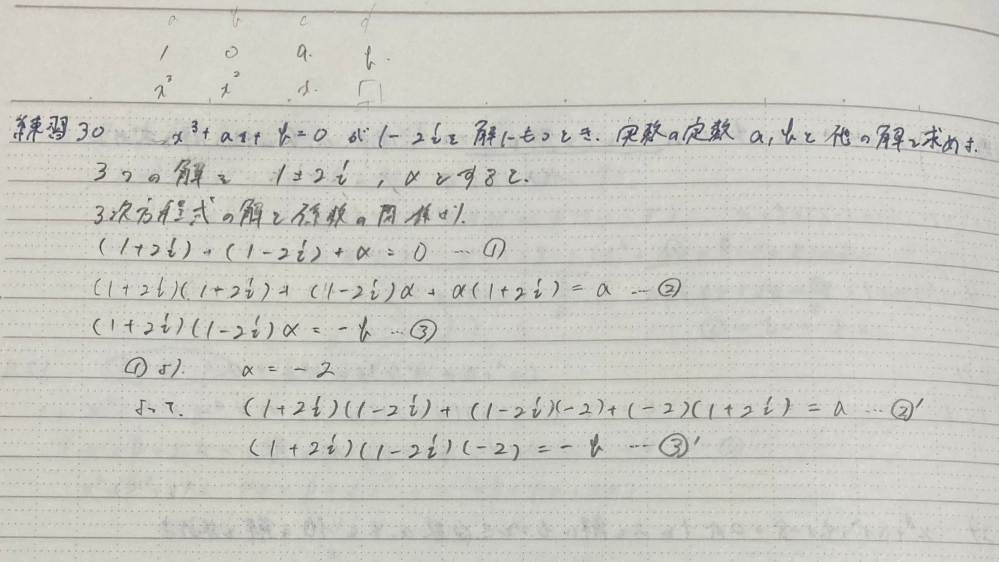 a b c d
1 0 a b
x³ x² x
練習30 x³+ax+b=0 が 1-2iを解にもつとき、実数の定数 a, bと他の解を求めよ
3つの解を 1±2i , αとすると、
3次方程式の解と係数の関係より
(1+2i)+(1-2i)+α=0 … ①
(1+2i)(1+2i)+(1-2i)α+α(1+2i)=a … ②
(1+2i)(1-2i)α=-b … ③
①より、 α=-2
よって、 (1+2i)(1-2i)+(1-2i)(-2)+(-2)(1+2i)=a … ②'
(1+2i)(1-2i)(-2)=-b … ③'